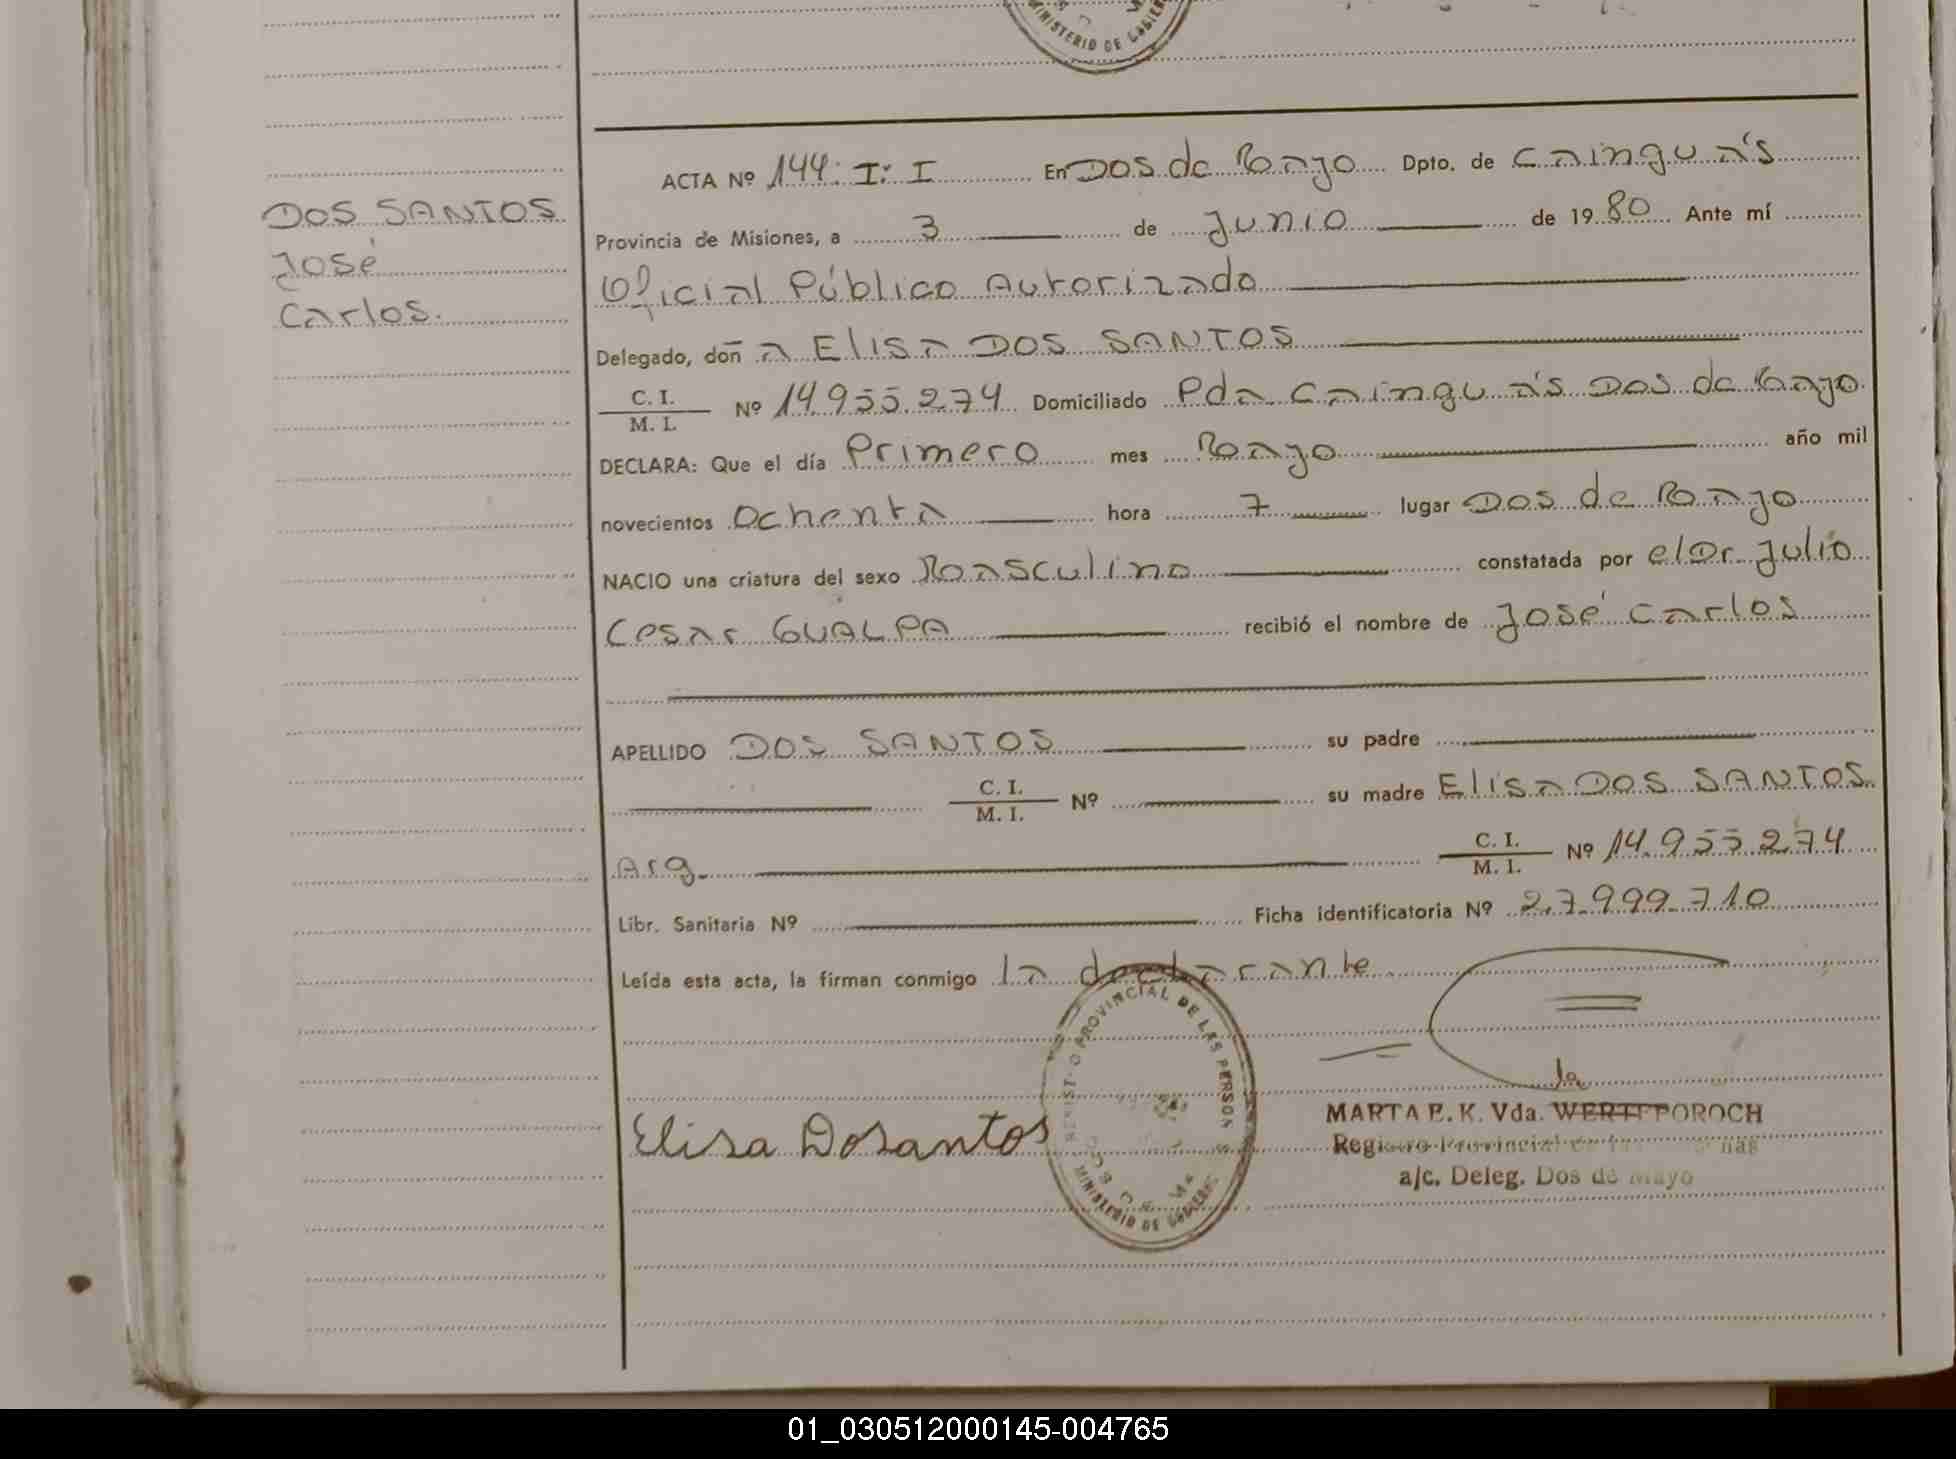 MINISTERIO DE GOBIERNO
ACTA Nº 144. I: I En Dos de Mayo Dpto. de Cainguás
DOS SANTOS
Provincia de Misiones, a 3 de Junio de 1980 Ante mí
José
Oficial Público Autorizado
Carlos.
Delegado, doña Elisa DOS SANTOS
C. I.
M. I. Nº 14.955.274 Domiciliado Pda Cainguás Dos de Mayo
DECLARA: Que el día Primero mes Mayo año mil
novecientos Ochenta hora 7 lugar Dos de Mayo
NACIO una criatura del sexo Masculino constatada por el Dr. Julio
Cesar GUALPA recibió el nombre de José Carlos
APELLIDO DOS SANTOS su padre
C. I.
M. I. Nº su madre Elisa DOS SANTOS.
Arg. C. I.
M. I. Nº 14.955.274
Libr. Sanitaria Nº Ficha identificatoria Nº 27.999.710
Leída esta acta, la firman conmigo la declarante
PROVINCIAL DE LAS PERSON
MARTA E. K. Vda.
Elisa Dosantos
a/c. Deleg. Dos de Mayo
MINISTERIO DE GOBIERNO
01_030512000145-004765